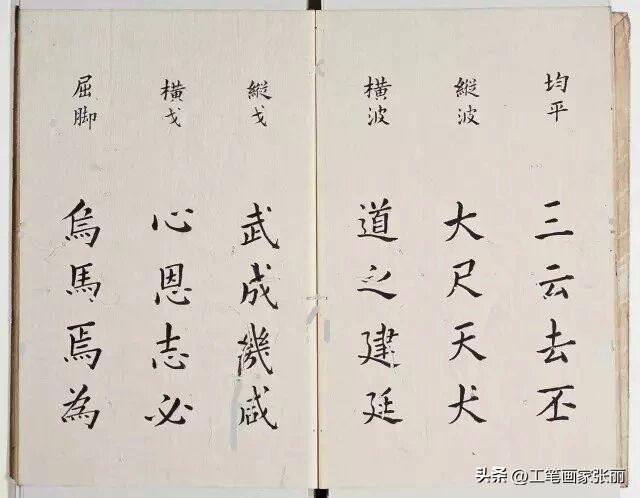 均平
三云去丕
縱波
大尺天犬
橫波
道之建廷
縱戈
武成幾咸
橫戈
心恩志必
屈脚
烏馬焉為
头条 @工笔画家张丽